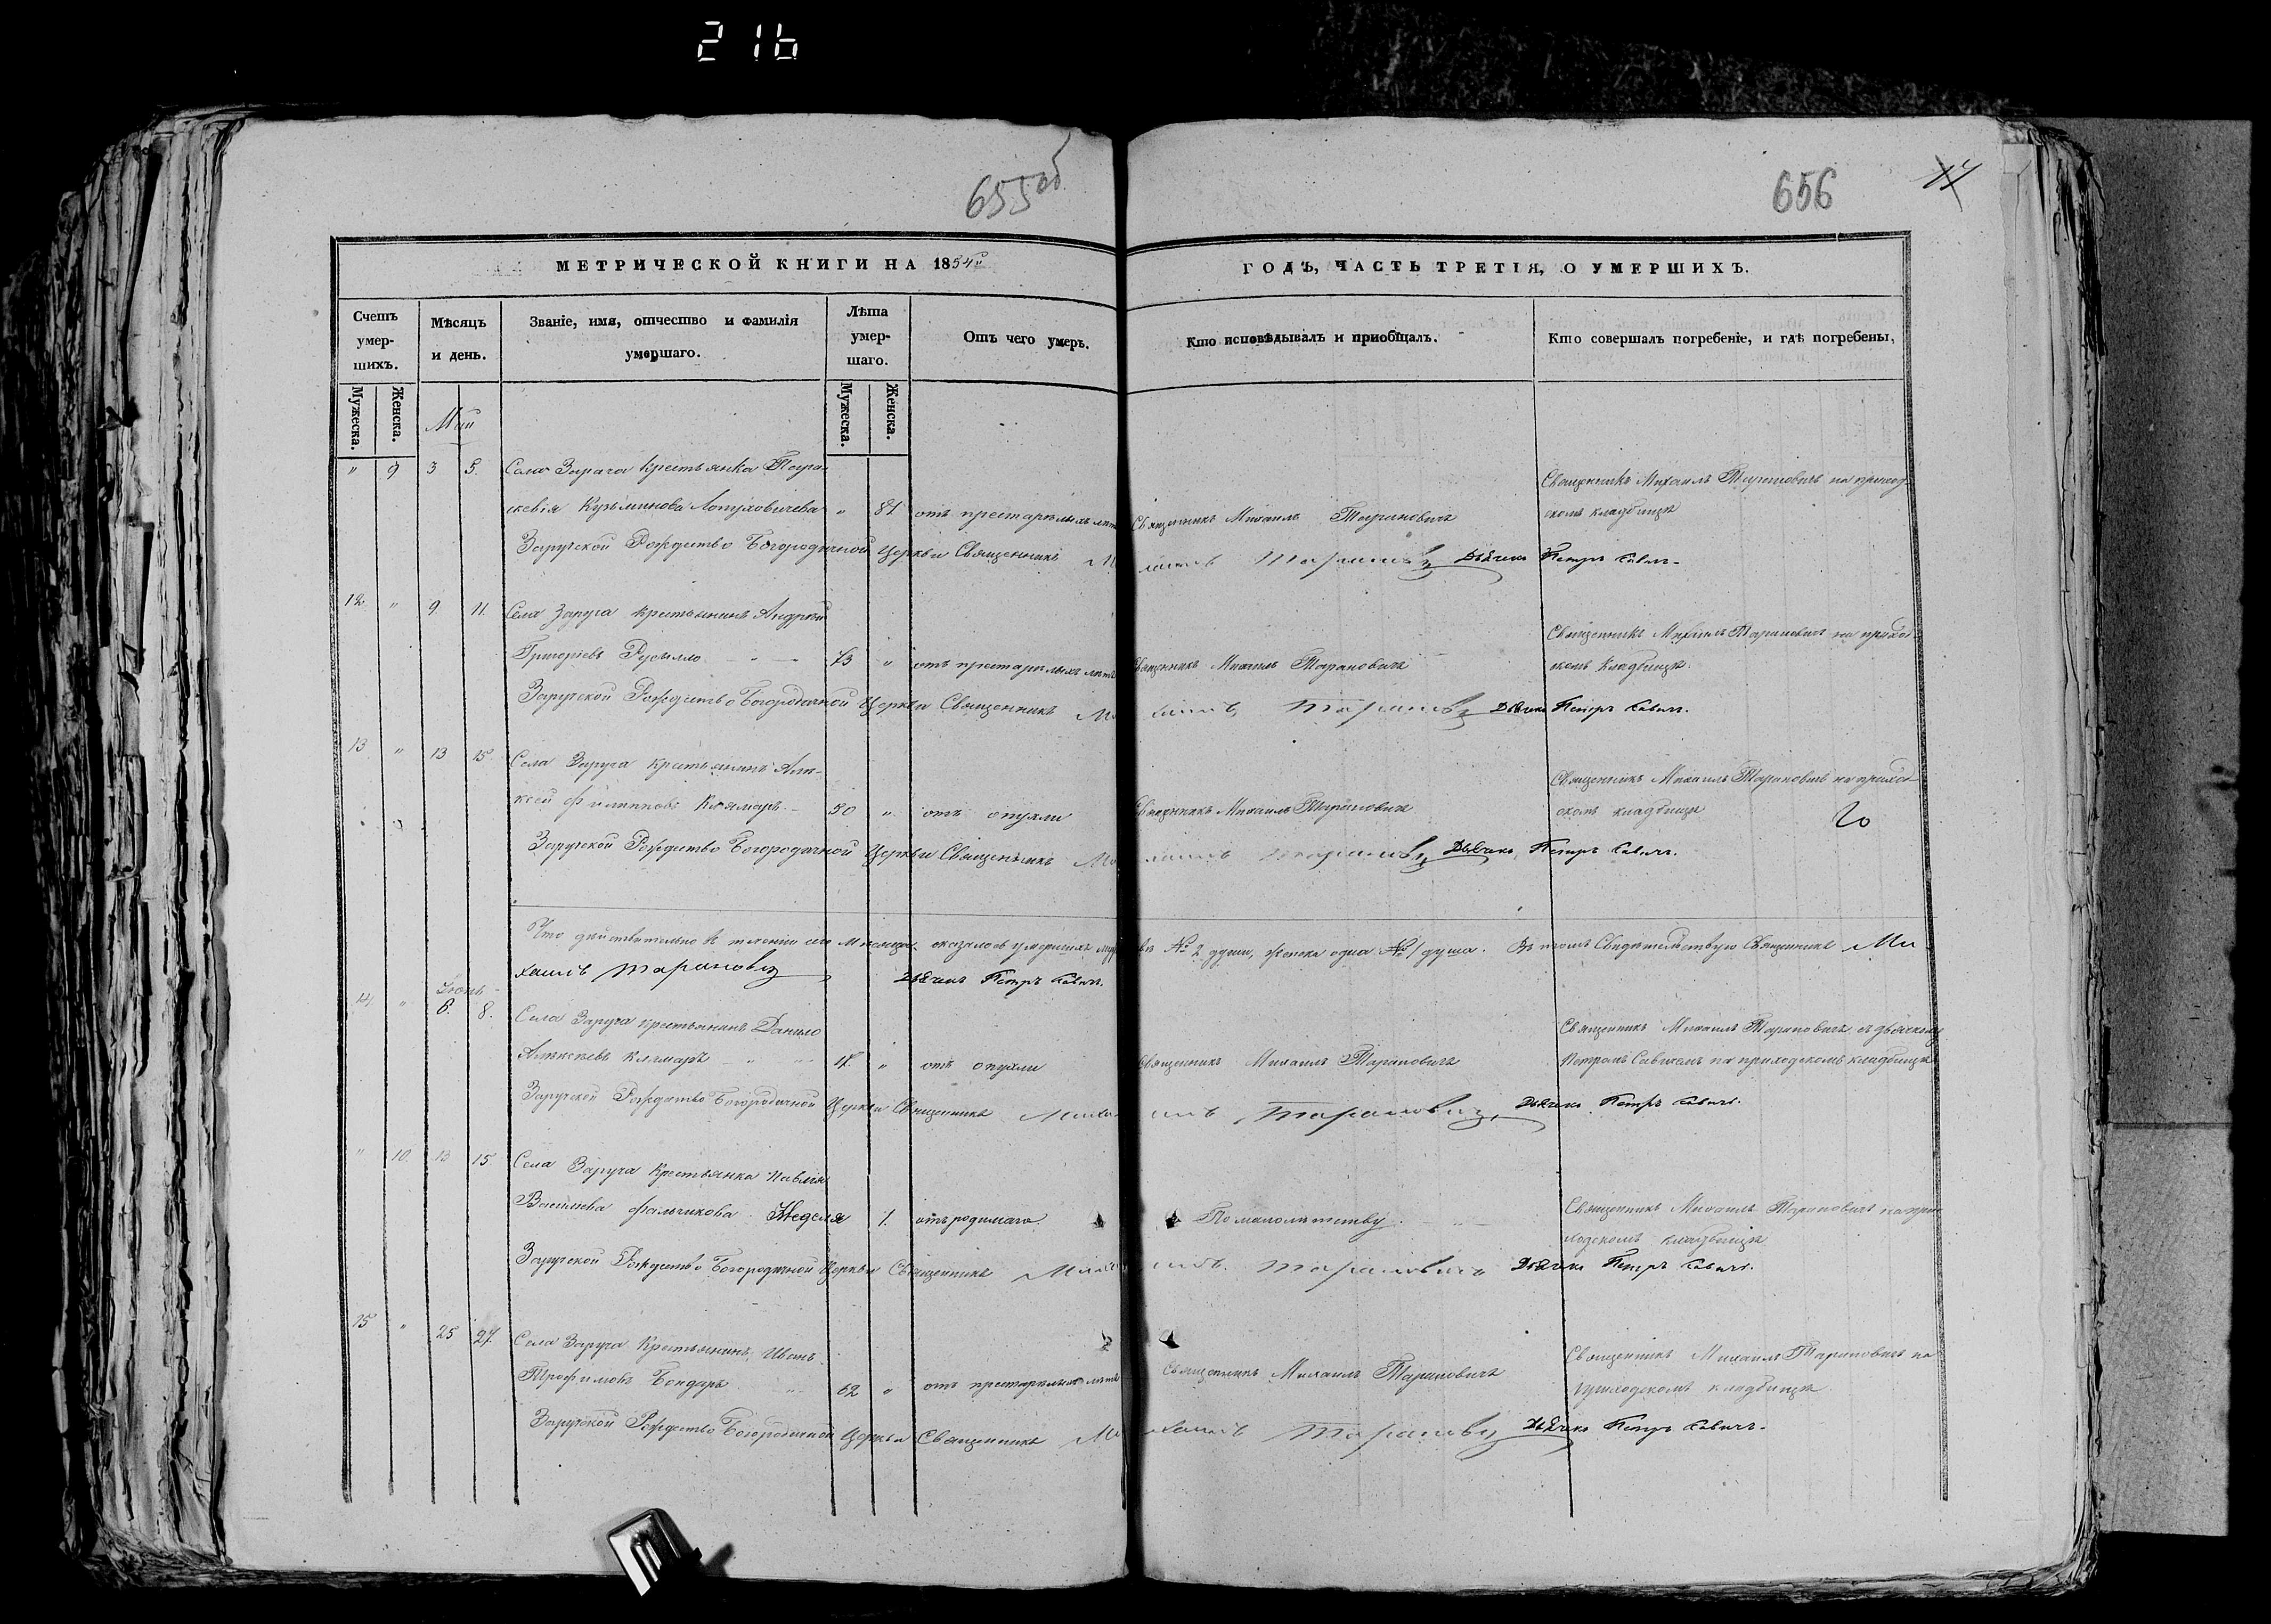 216
655об
656
17
МЕТРИЧЕСКОЙ КНИГИ НА 1854й
ГОДЪ, ЧАСТЬ ТРЕТІЯ, О УМЕРШИХЪ.
Счетъ умер-шихъ.
Мѣсяцъ и день.
Званіе, имя, отчество и фамилія умершаго.
Лѣта умер-шаго.
Отъ чего умеръ.
Кто исповѣдывалъ и пріобщалъ.
Кто совершалъ погребеніе, и гдѣ погребены,
Мужеска. Женска.
Мужеска. Женска.
Май
" 9 3 5. Села Заруча крестьянка Пара-
Священникъ Михаилъ Тарановичъ на приход
скевія Кузьминова " 81 отъ престарѣлыхъ лѣтъ Священникъ Михаилъ Тарановичъ
скомъ кладбищѣ
Заручской Рождество Богородичной Церкви Священникъ Михаилъ Тарановичъ Дьячекъ Петръ Савичъ.
12. " 9 11. Села Заруча крестьянинъ Андрей
Священникъ Михаилъ Тарановичъ на приход
Григоріевъ 73 " отъ престарѣлыхъ лѣтъ Священникъ Михаилъ Тарановичъ
скомъ кладбищѣ.
Заручской Рождество Богородичной Церкви Священникъ Михаилъ Тарановичъ Дьячекъ Петръ Савичъ.
13 " 13 15. Села Заруча крестьянинъ Але-
Священникъ Михаилъ Тарановичъ на приход
ксѣй Филиповъ 50 " отъ опухли Священникъ Михаилъ Тарановичъ
скомъ кладбищѣ
20
Заручской Рождество Богородичной Церкви Священникъ Михаилъ Тарановичъ Дьячекъ Петръ Савичъ.
Что дѣйствительно въ теченіи сего Мѣсяца оказалось умершихъ № 2 души, женска одна № 1 душа. Въ томъ Свидѣтельствую Священникъ Ми-
хаилъ Тарановичъ Дьячекъ Петръ Савичъ.
Іюнь
14 " 6. 8. Села Заруча крестьянинъ Данило
Священникъ Михаилъ Тарановичъ съ дьячкомъ
Алексѣевъ " отъ опухли Священникъ Михаилъ Тарановичъ
Петромъ Савичемъ на приходскомъ кладбищѣ
Заручской Рождество Богородичной Церкви Священникъ Михаилъ Тарановичъ, Дьячекъ Петръ Савичъ.
" 10. 13 15 Села Заруча Крестьянка
Васильева Фальчикова Недѣля 1. отъ родимаго. По малолѣтству.
Священникъ Михаилъ Тарановичъ на при-
ходскомъ кладбищѣ
Заручской Рождество Богородичной Церкви Священникъ Михаилъ Тарановичъ Дьячекъ Петръ Савичъ.
15 " 25 27. Села Заруча Крестьянинъ Иванъ
Священникъ Михаилъ Тарановичъ на
Трофимовъ Бондарь 62 " отъ престарѣлыхъ лѣтъ Священникъ Михаилъ Тарановичъ
приходскомъ кладбищѣ
Заручской Рождество Богородичной Церкви Священникъ Михаилъ Тарановичъ Дьячекъ Петръ Савичъ.